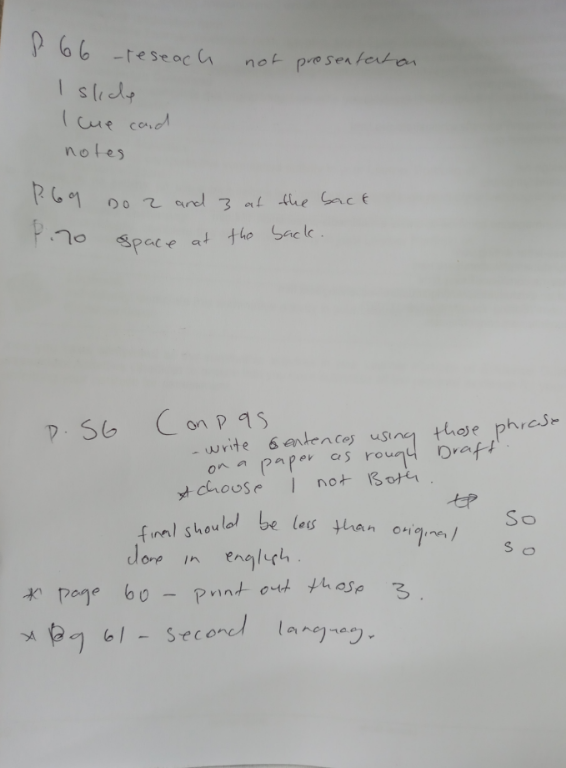 P 66 - reseach not presentation
1 slide
1 cue card
notes
P.69 Do 2 and 3 at the back
P.70 space at the back.
P. 56
- write sentences using those phrase
on a paper as rough Draft.
* choose 1 not Both.
final should be less than original
done in english.
so
so
* page 60 - print out those 3.
* pg 61 - second languag.